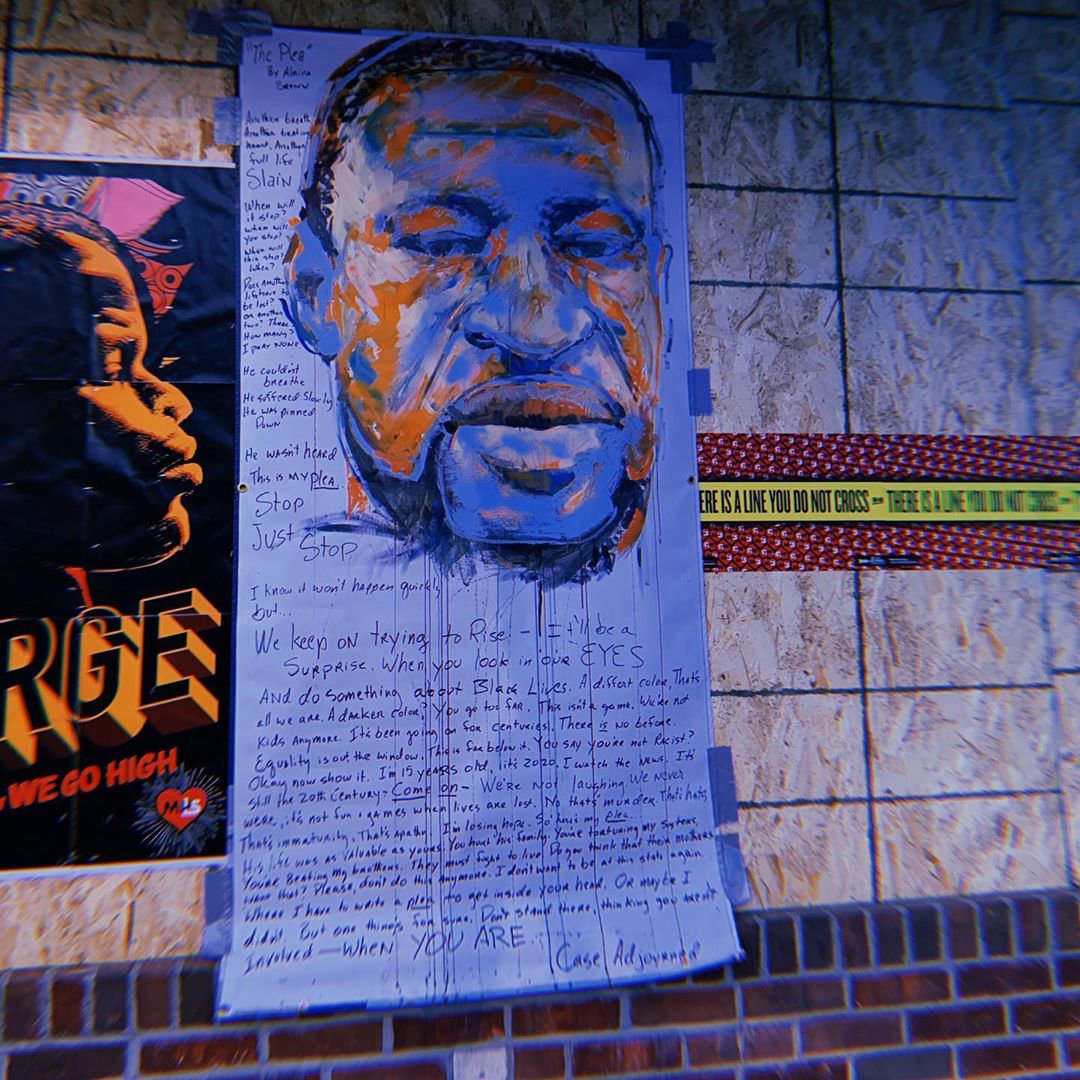 "The Plea"
By Alaina
Brown
Another breath
Another beating
heart. Another
full life
Slain
When will
it stop?
when will
you stop?
When will
this stop?
When?
Does Another
life have to
be lost?
or another
two? Three?
How many?
I pray NONE
He couldn't
breathe
He suffered slowly
He was pinned
Down
He wasn't heard
This is my plea.
Stop
Just
Stop
I know it won't happen quickly
but...
We keep on trying to Rise - It'll be a
Surprise. When you look in our EYES
And do something about Black Lives. A differt color, That's
all we are. A darker color? You go too far. This isn't a game. We're not
Kids Anymore. It's been going on for centuries. There is no before.
Equality is out the window. This is far below it. You say you're not Racist?
Okay now show it. I'm 15 years old, it's 2020, I watch the news. It's
still the 20th Century - Come on - We're not laughing. We never
were, it's not fun & games when lives are lost. No that's murder. That's hate,
That's immaturity, That's Apathy. I'm losing hope. So here's my plea...
His life was as valuable as yours. You hurt his family. You're torturing my sisters,
You're Beating my brothers. They must fight to live. Do you think that their mothers
want that? Please, don't do this anymore. I don't want to be at this state again.
Where I have to write a plea to get inside your head. Or maybe I
didn't. But one thing's for sure. Don't stand there, thinking you aren't
Involved - When YOU ARE...
Case Adjourned
RGE
WE GO HIGH
ERE IS A LINE YOU DO NOT CROSS THERE IS A LINE YOU DO NOT CROSS